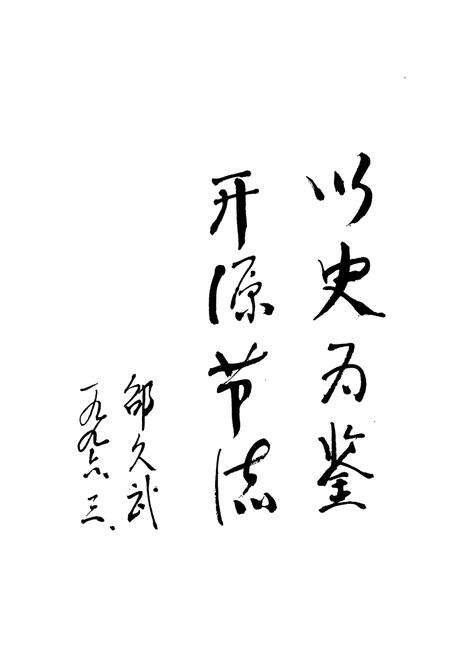 以史为鉴
开源节流
邵久武
一九九六.三.